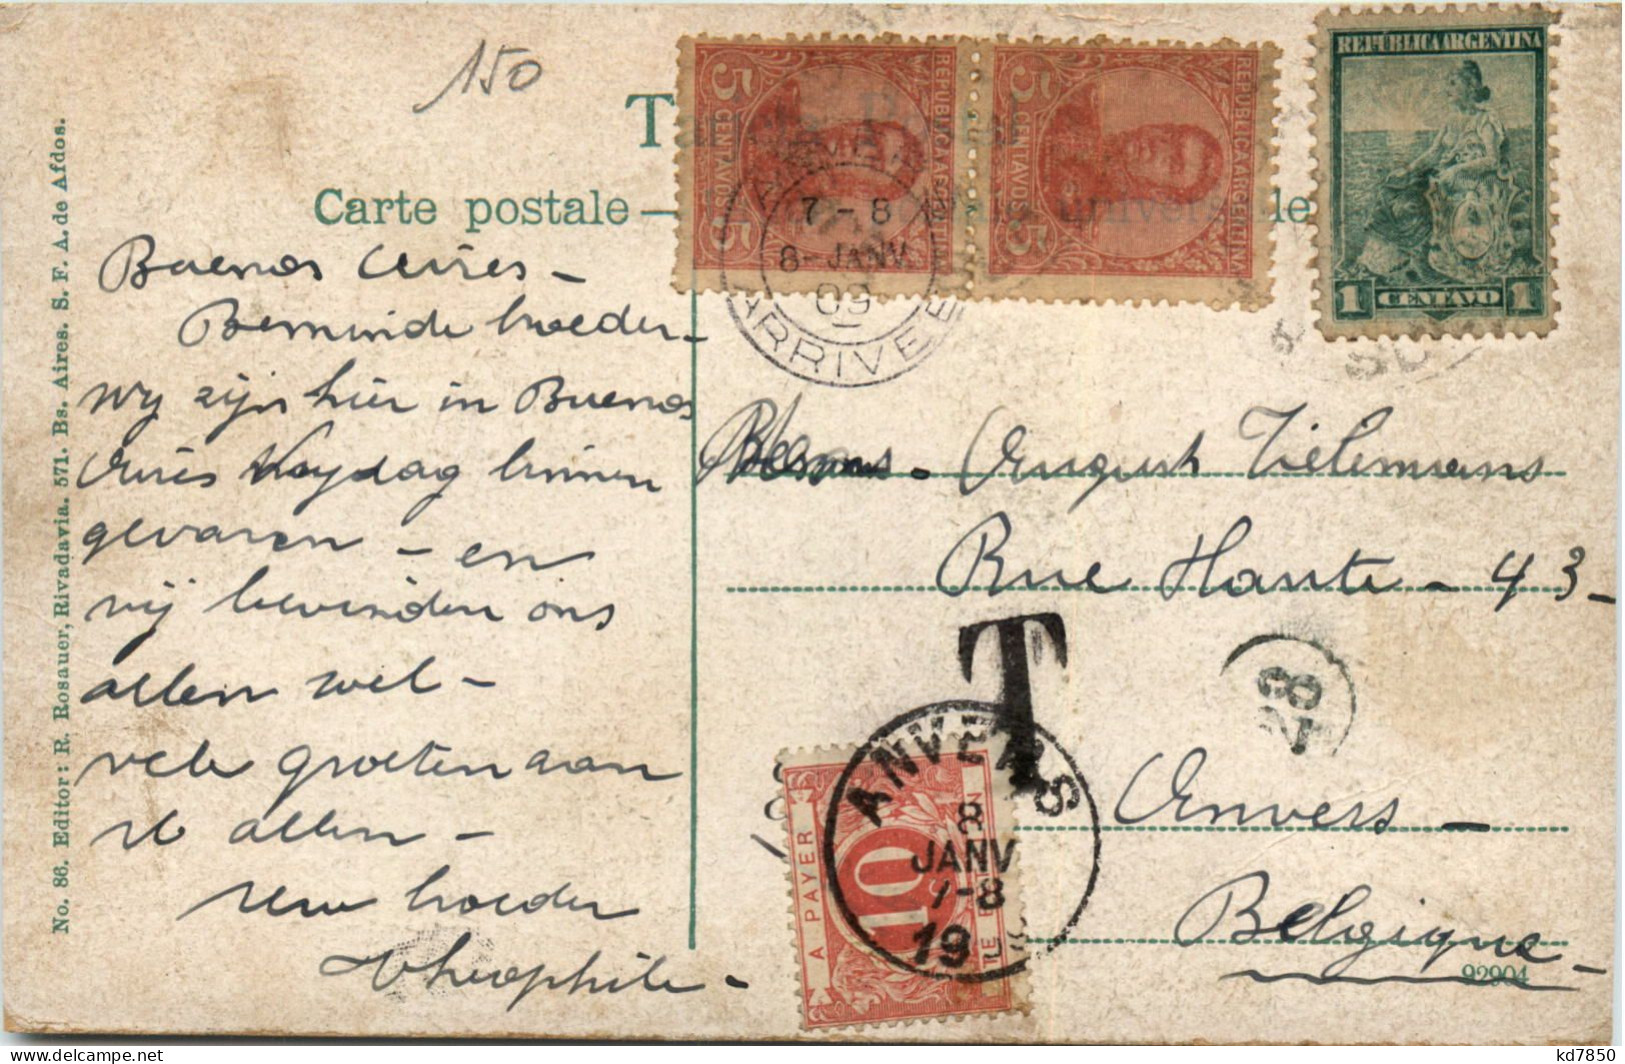 150
REPUBLICA ARGENTINA
5 CENTAVOS 5
REPUBLICA ARGENTINA
5 CENTAVOS 5
REPUBLICA ARGENTINA
1 CENTAVO 1
Carte postale —
7-8
8-JANV.
09
ARRIVEE
No. 86. Editor: R. Rosauer, Rivadavia. 571. Bs. Aires. S. F. A. de Afdos.
Buenos Aires –
Beminde broeder –
wij zijn hier in Buenos
Aires Vrydag binnen
gevaren – en
wij bevinden ons
allen wel –
vele groeten aan
allen –
uw broeder
Theophile –
August Tielemans
Rue Haute – 43 –
Anvers –
Belgique –
T
28
ANVERS
8
JANV
7-8
19
A PAYER
10
92904
kd7850